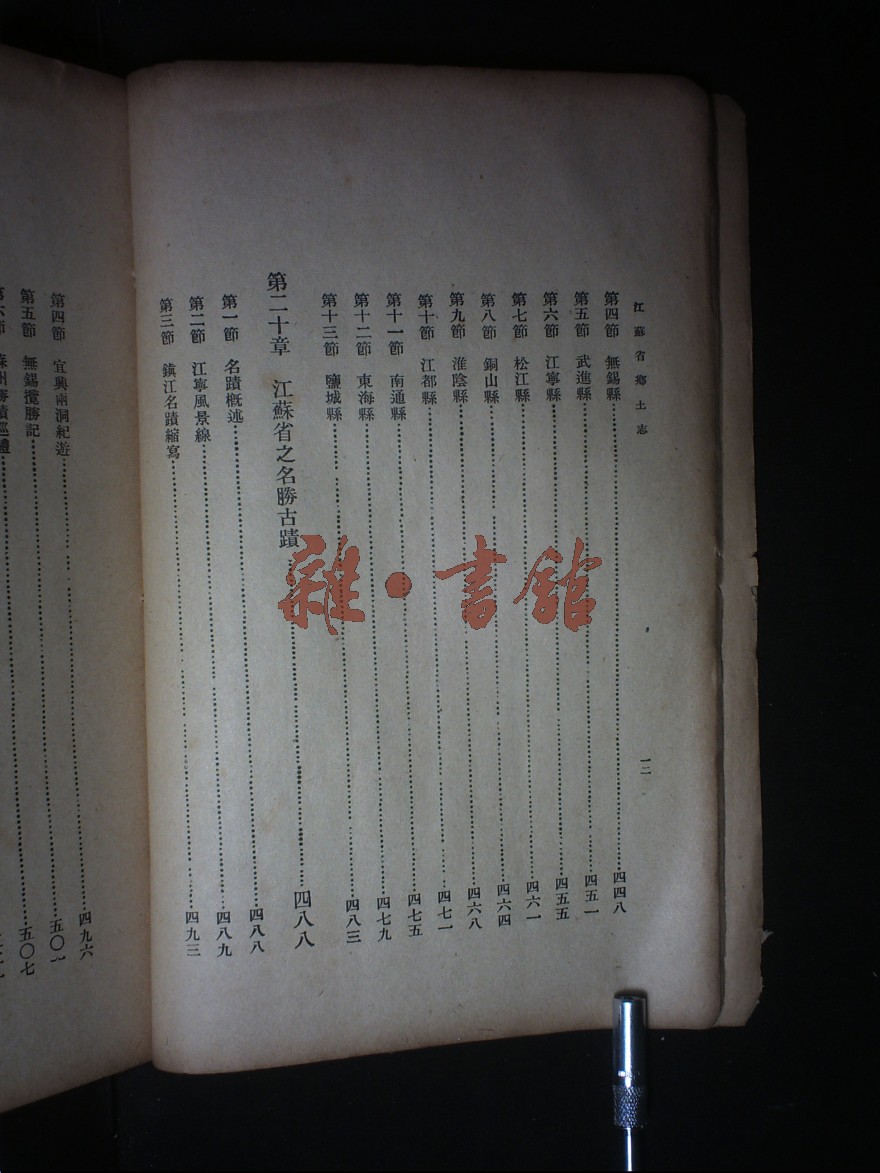 江蘇省鄉土志
一二
第四節 無錫縣 四四八
第五節 武進縣 四五一
第六節 江寧縣 四五五
第七節 松江縣 四六一
第八節 銅山縣 四六四
第九節 淮陰縣 四六八
第十節 江都縣 四七一
第十一節 南通縣 四七五
第十二節 東海縣 四七九
第十三節 鹽城縣 四八三
第二十章 江蘇省之名勝古蹟 四八八
第一節 名蹟概述 四八八
第二節 江寧風景線 四八九
第三節 鎮江名蹟縮寫 四九三
第四節 宜興兩洞紀遊 四九六
第五節 無錫攬勝記 五〇七
雜·書館